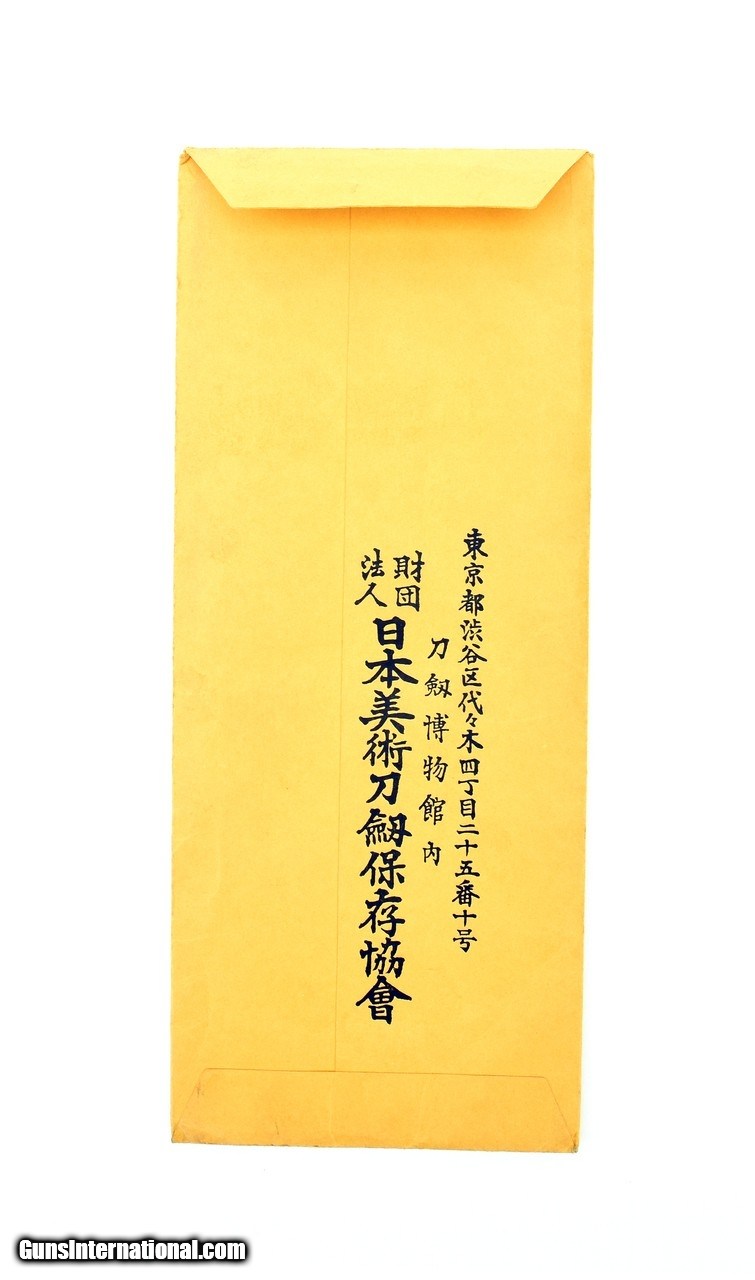 東京都渋谷区代々木四丁目二十五番十号
刀劔博物館内
財団法人日本美術刀劔保存協會
GunsInternational.com